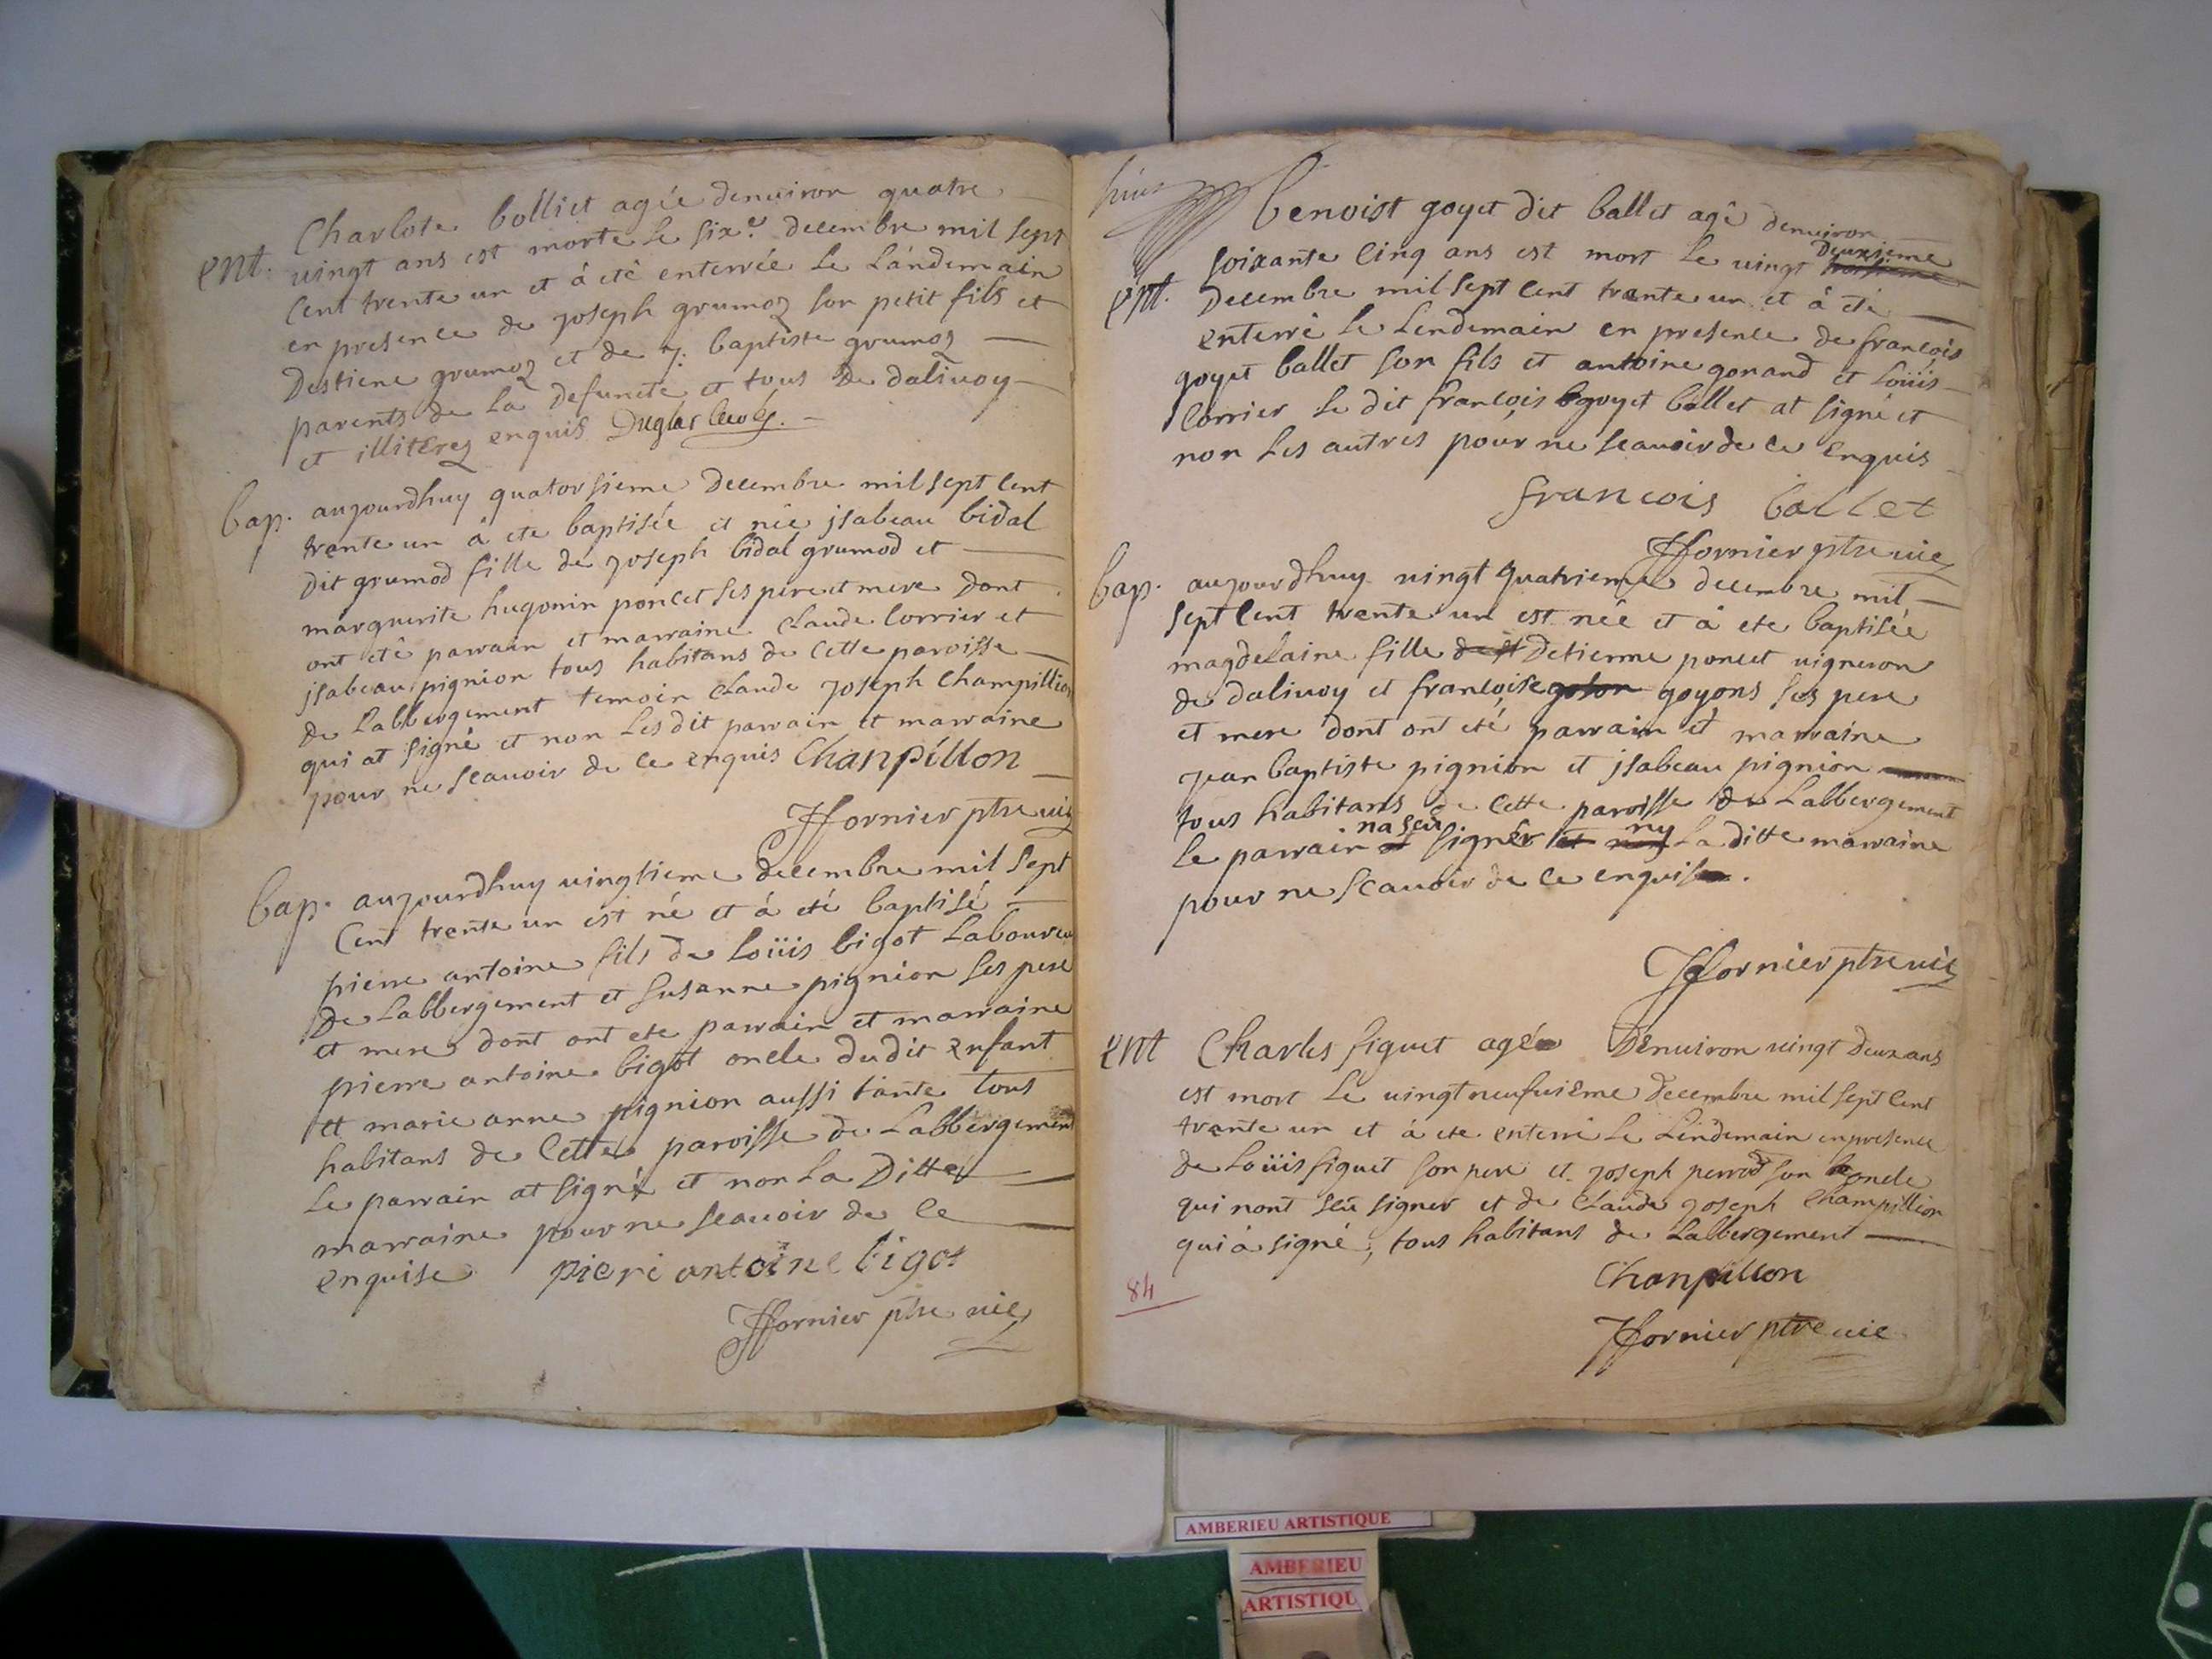 Charlote bolliet agée denuiron quatre
ent. uingt ans est morte le six.e decembre mil sept
cent trente un et à eté enterrée le Landemain
en presence de joseph grumoz son petit fils et
Destiene grumoz et de j: baptiste grumoz
parents de La defuncte et tous de daliuoy
et illiterez enquis
bap. aujourdhuy quatorsieme decembre mil sept cent
trente un à ete baptisée et née jsabeau bidal
dit grumod fille de joseph bidal grumod et
marguerite hugonin poncet ses pere et mere dont
ont eté parrain et marraine Claude Corrier et
jsabeau pignion tous habitans de cette paroisse
de Labbergement temoin Claude joseph Champillion
qui at signé et non Les dit parrain et marraine
pour ne scauoir de ce enquis Chanpillon
Jffornier ptre uic
bap. aujourdhuy uingtieme decembre mil sept
Cent trente un est né et à eté baptisé
pierre antoine fils de Loüis bigot Laboureu
De Labbergement et susanne pignion ses pere
et mere dont ont ete parrain et marraine
pierre antoine bigot oncle dudit enfant
et marie anne pignion aussi tante tous
habitans de Cette paroisse de Labbergement
Le parrain at signé et non La Ditte
marraine pour ne scauoir de ce
enquise pieri antoine bigot
Jffornier ptre uic
benoist goyet dit ballet agé denuiron
Deuxieme
soixante Cinq ans est mort Le uingt
ent. Decembre mil sept cent trente un et à eté
enterré le Lendemain en presence de francois
goyet ballet son fils et antoine gonand et Loüis
Corrier le dit francois goyet ballet at signé et
non Les autres pour ne scauoir de ce enquis
francois ballet
Jffornier ptre uic
bap. aujourdhuy uingt quatrieme decembre mil
sept Cent trente un est née et à ete baptisée
magdelaine fille Detienne poncet uigneron
de daliuoy et francoise goyons ses pere
et mere dont ont eté parrain et marraine
jean baptiste pignion et jsabeau pignion
tous habitans de cette paroisse de Labbergement
na seu ny
Le parrain signér La ditte marraine
pour ne scauoir de ce enquis.
Jffornier ptre uic
ent Charles figuet agé Denuiron uingt deux ans
est mort Le uingt neufuieme decembre mil sept Cent
trante un et à ete enterré le Lendemain en presence
de Loüis figuet son pere et joseph perrod son oncle
qui nont seu signer et de Claude joseph Champillion
qui à signé, tous habitans de Labbergement
Chanpillon
84
Jffornier ptre uic
AMBERIEU ARTISTIQUE
AMBERIEU
ARTISTIQU